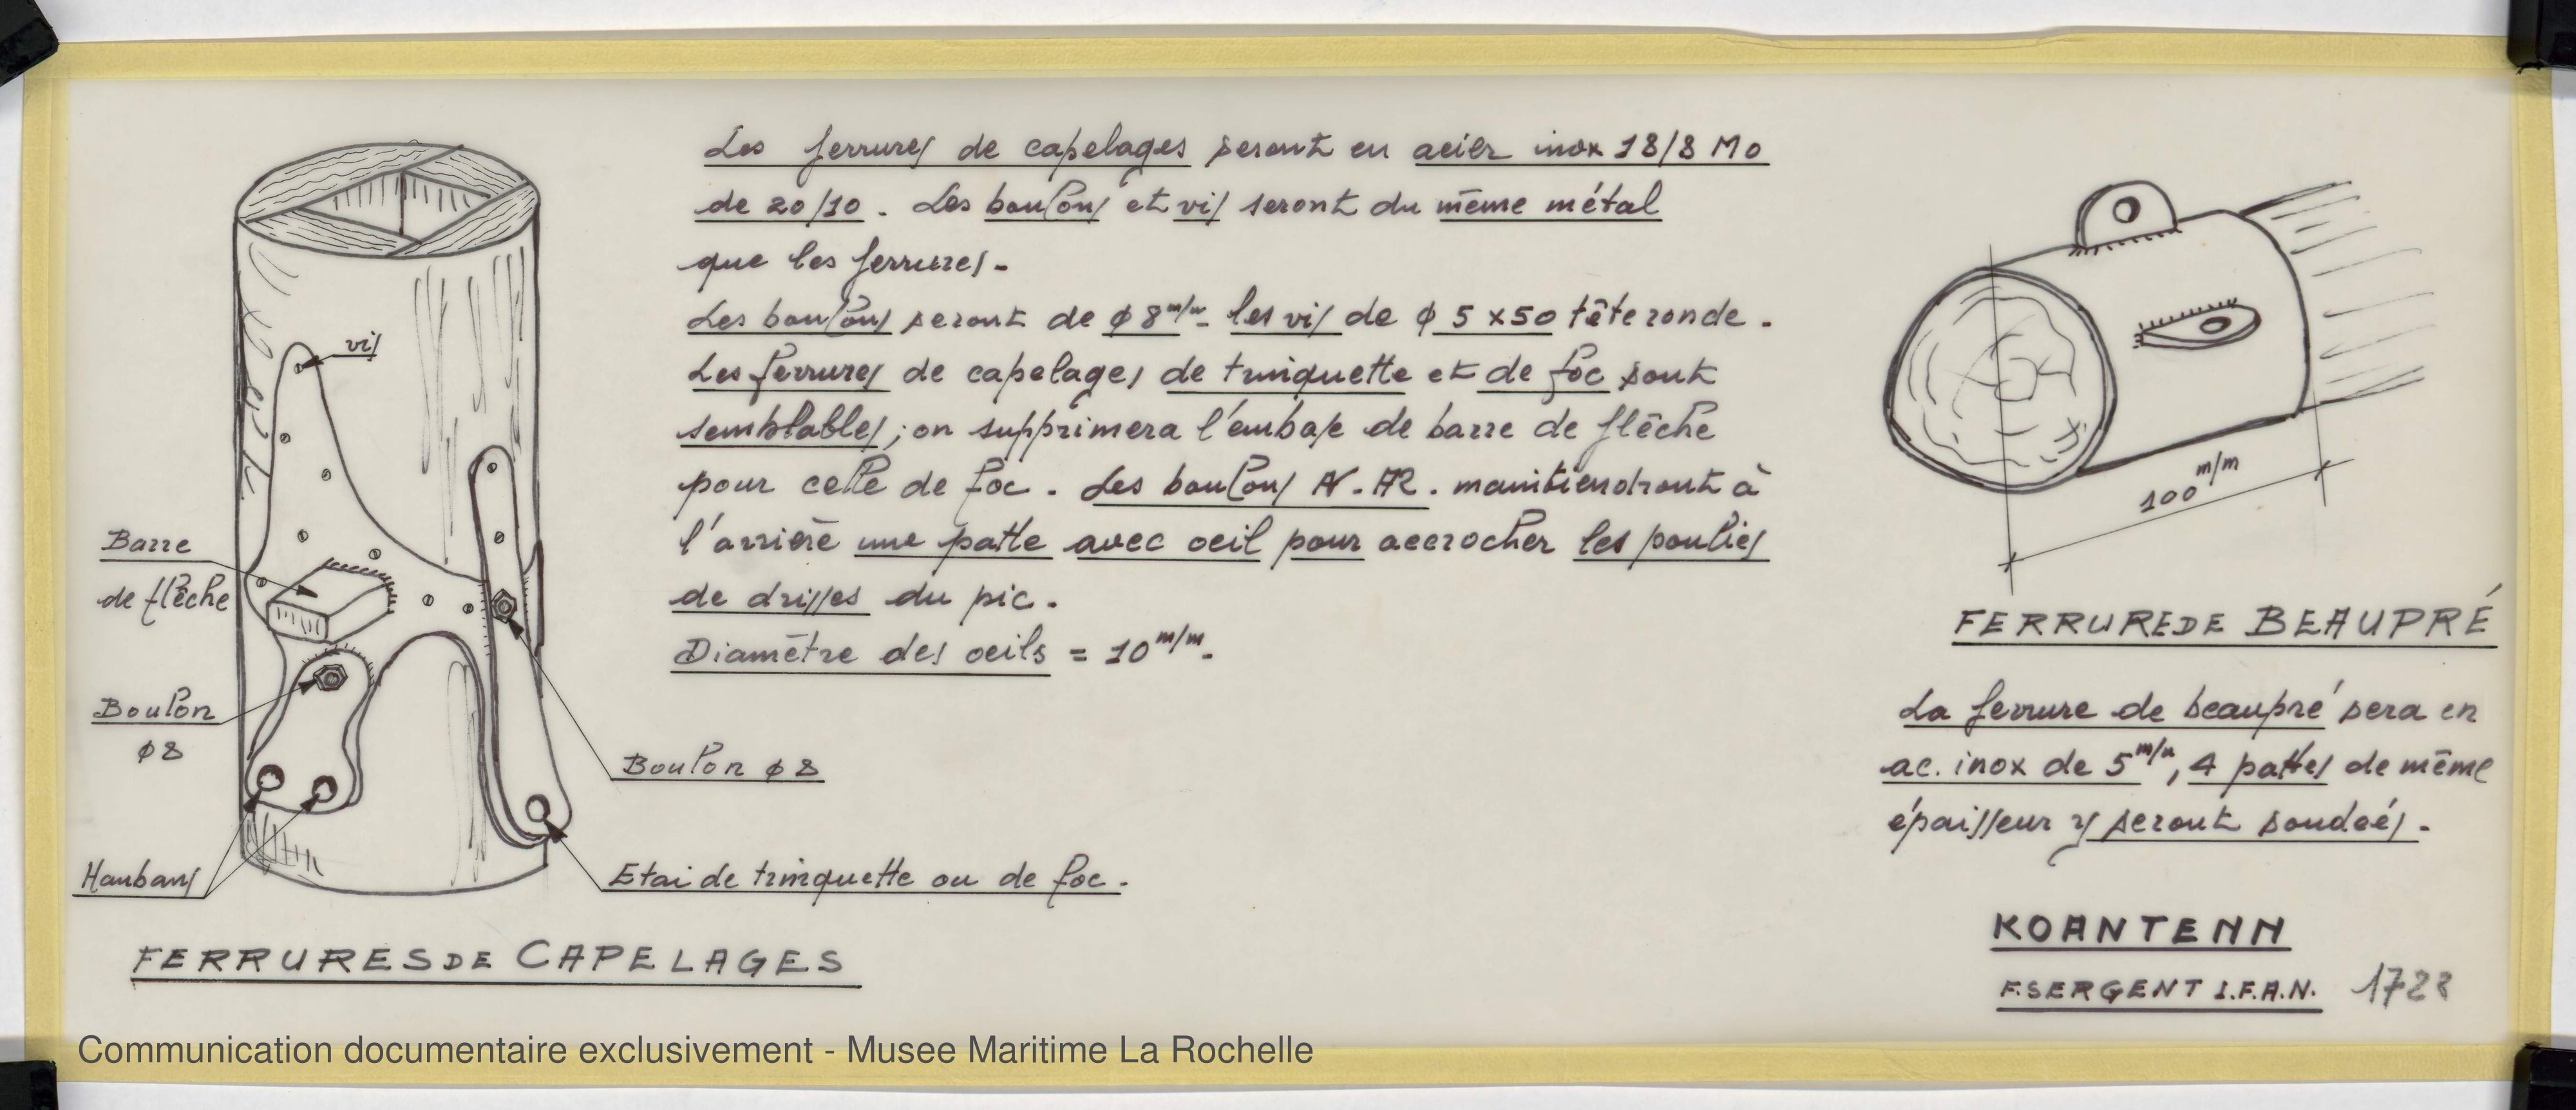 Les ferrures de capelages seront en acier inox 18/8 Mo
de 20/10. Les boulons et vis seront du même métal
que les ferrures.
Les boulons seront de φ 8 m/m. les vis de φ 5 x 50 tête ronde.
Les ferrures de capelages de trinquette et de foc sont
semblables; on supprimera l'embase de barre de flêche
pour celle de foc. Les boulons AV. AR. maintiendront à
l'arrière une patte avec oeil pour accrocher les poulies
de drisses du pic.
Diamètre des oeils = 10 m/m.
vis
Barre
de flêche
Boulon
φ 8
Haubans
Boulon φ 8
Etai de trinquette ou de foc.
FERRURES DE CAPELAGES
100 m/m
FERRURE DE BEAUPRÉ
La ferrure de beaupré sera en
ac. inox de 5 m/m, 4 pattes de même
épaisseur y seront soudeés.
KOANTENN
F. SERGENT I.F.A.N.
Communication documentaire exclusivement - Musee Maritime La Rochelle